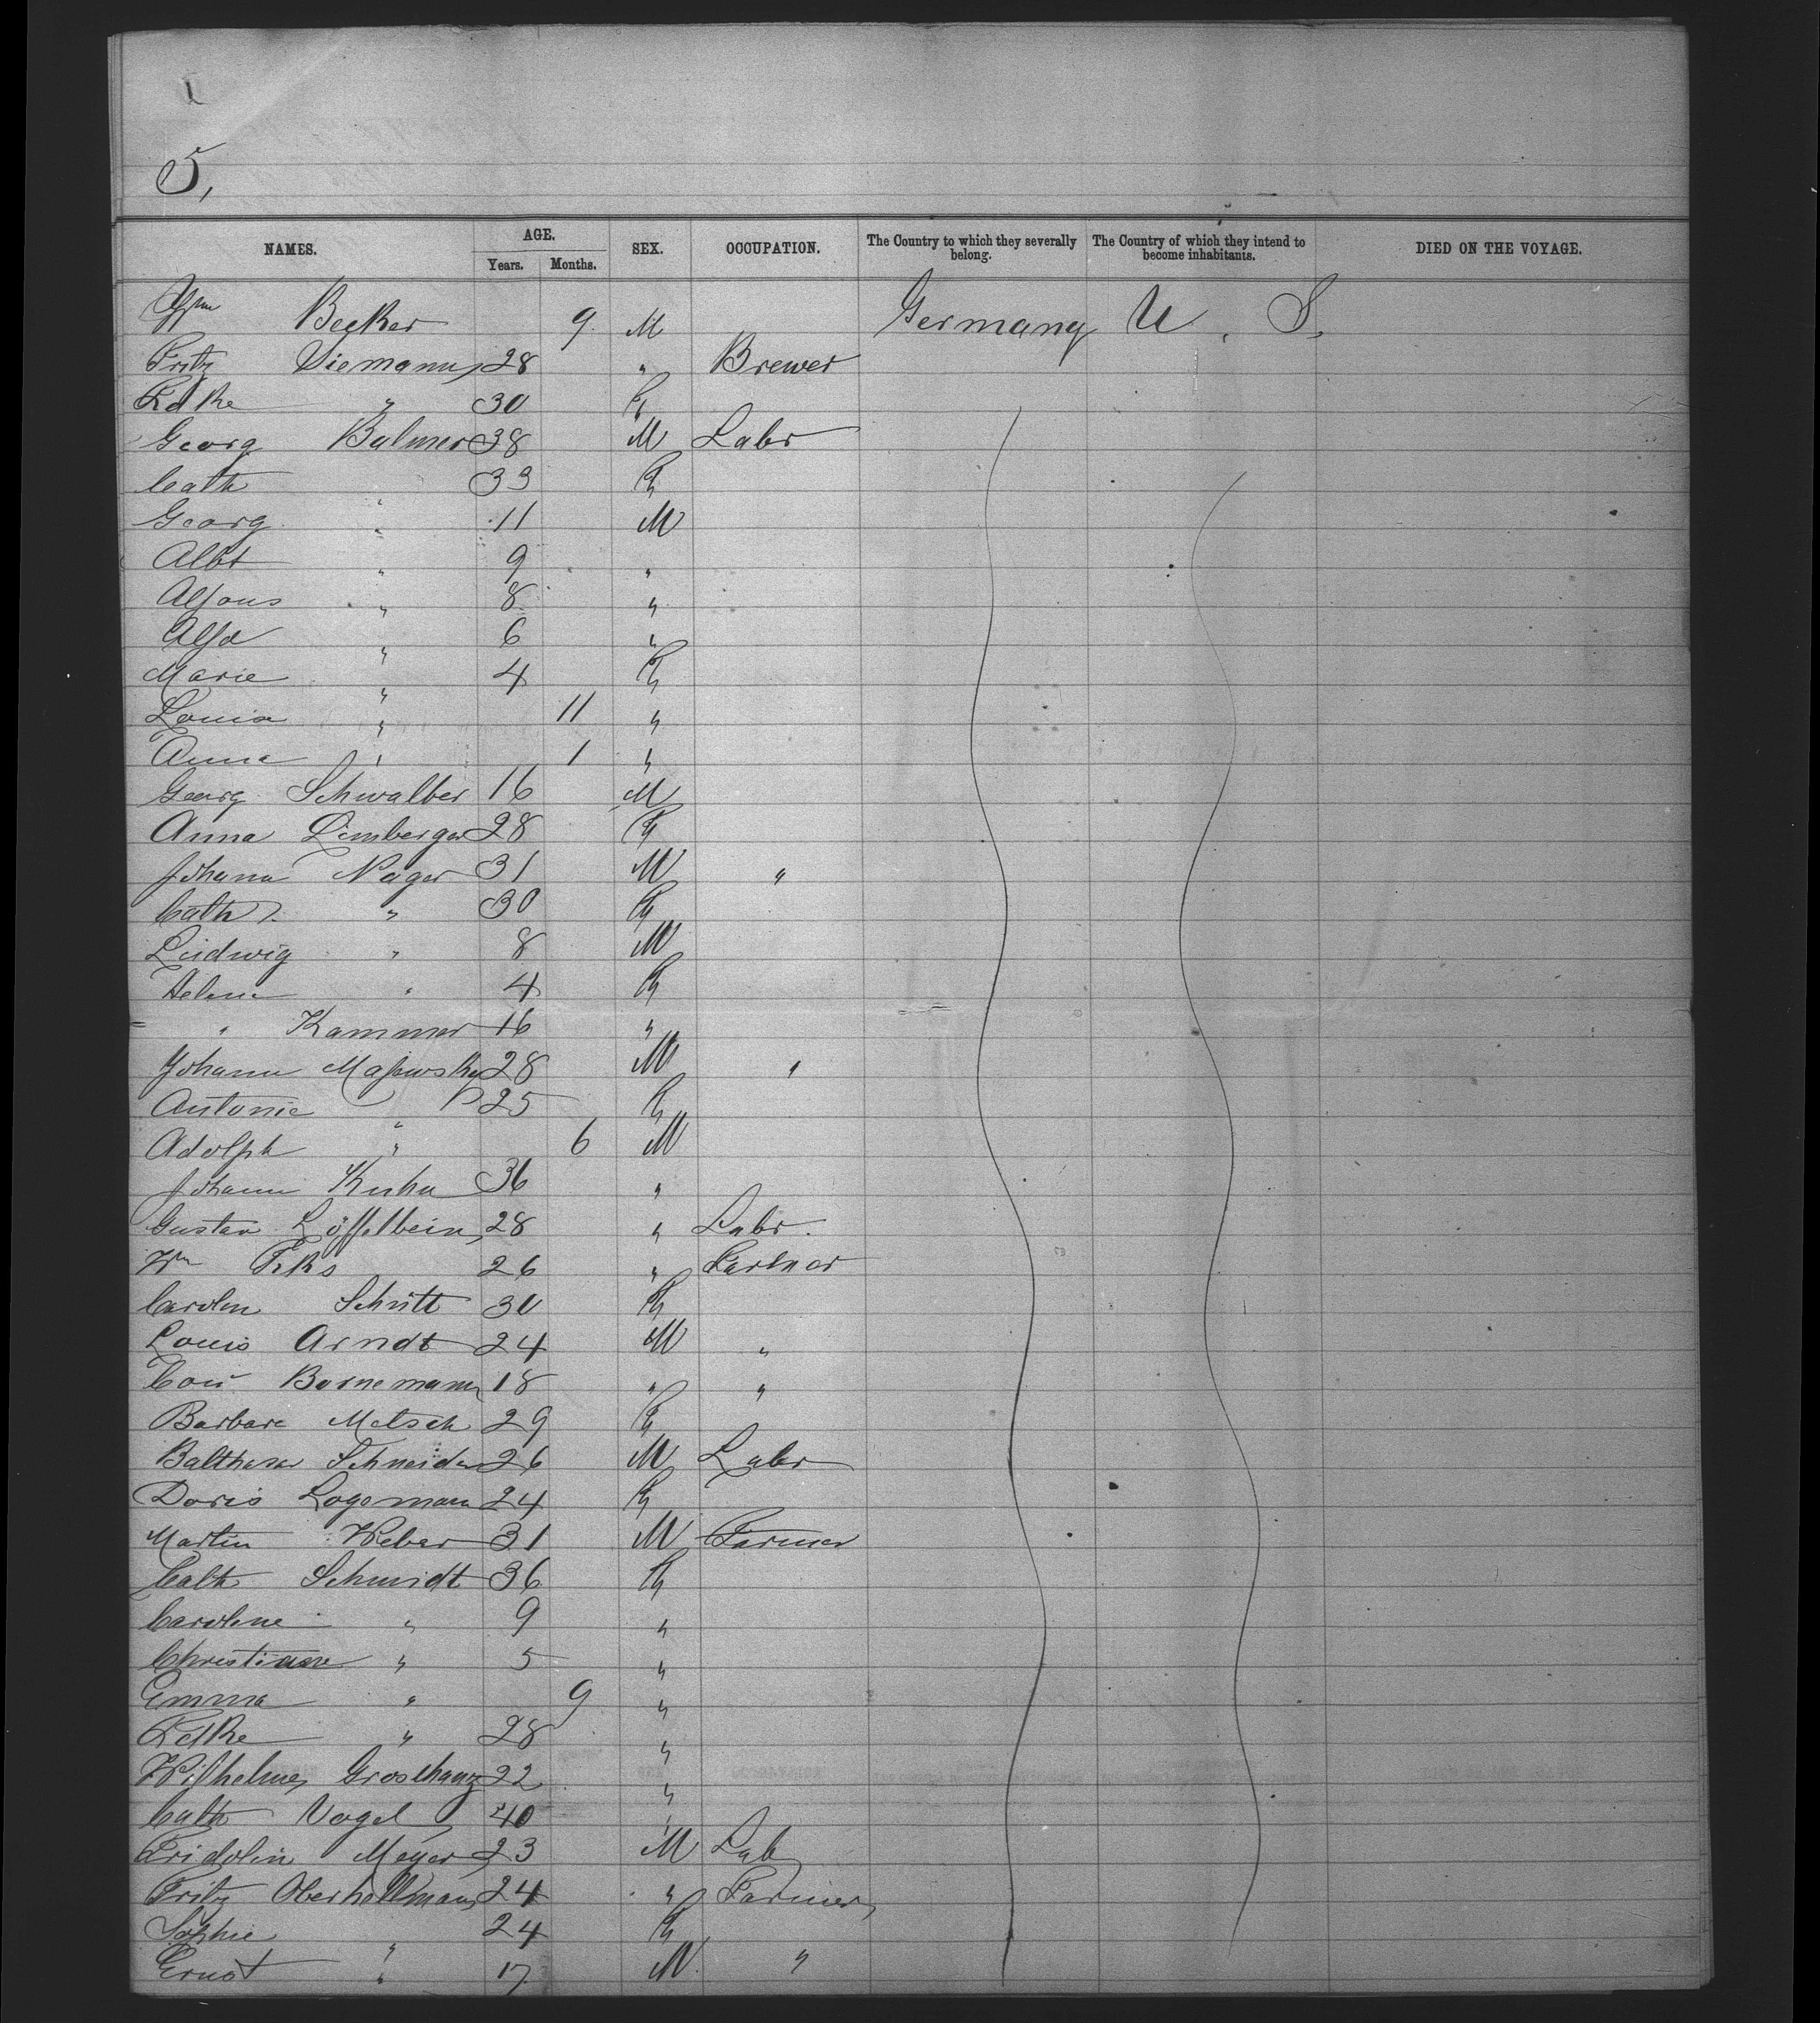 5,
NAMES. AGE. SEX. OCCUPATION. The Country to which they severally belong. The Country of which they intend to become inhabitants. DIED ON THE VOYAGE.
Years. Months.
Becker 9 M Germany U. S.
Fritz Siemann 28 " Brewer
" 30 F
Georg Bulmer 38 M Labr
Cath 33 F
Georg " 11 M
Albt " 9 "
Alfons " 8 "
Alfd " 6 "
Marie " 4 F
Louise " 11 "
Anna " 1 "
Georg Schwalber 16 M
Anna Limberger 28 F
Johann Nager 31 M "
Cath " 30 F
Ludwig " 8 M
Helene " 4 F
" Kammer 16 "
Johann Majewsky 28 M "
Antonie " 25 F
Adolph " 6 M
Johann Kuhn 36 "
Gustav Löffelbein 28 " Labr.
Wm 26 "
Carolin Schütt 30 F
Louis Arndt 24 M "
Bornemann 18 " "
Barbara Metsch 29 F
Balthasar Schneider 26 M Labr
Doris Logemann 24 F
Martin Weber 31 M Farmer
Cath Schmidt 36 F
Caroline " 9 "
Christiane " 5 "
Emma " 9 "
" 28 "
Wilhelme Groshanz 22 "
Cath Vogel 40 "
Fridolin Meyer 23 M Lab
Fritz Oberhellmann 24 " Farmer
Sophie " 24 F
Ernst " 17 M "